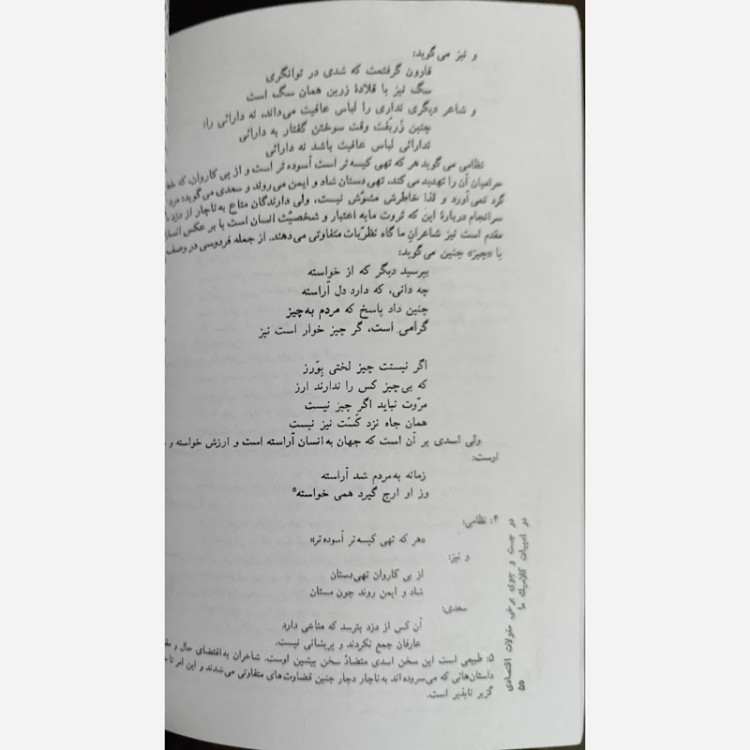 و نیز می‌گوید:
قارون گرفتمت که شدی در توانگری
سگ نیز با قلادهٔ زرین همان سگ است
و شاعر دیگری نداری را لباس عافیت می‌داند، نه دارائی را:
چنین زربفت وقت سوختن گفتار به دارائی
ندارائی لباس عافیت باشد نه دارائی
نظامی می‌گوید هر که تهی کیسه‌تر است آسوده‌تر است و از پی کاروان، که
حرامیان آن را تهدید می‌کند، تهی‌دستان شاد و ایمن می‌روند و سعدی می‌گوید: مرد
گرد نمی‌آورد و لذا خاطرش مشوّش نیست، ولی دارندگان متاع به‌ناچار از دزد
سرانجام دربارهٔ این که ثروت مایه اعتبار و شخصیّت انسان است یا بر عکس
مقدم است نیز شاعران ما گاه نظریّات متفاوتی می‌دهند. از جمله فردوسی در وصف
یا «چیز» چنین می‌گوید:
بپرسید دیگر که از خواسته
چه دانی، که دارد دل آراسته
چنین داد پاسخ که مردم به‌چیز
گرامی است، گر چیز خوار است نیز
اگر نیستت چیز لختی بِوَرز
که بی‌چیز کس را ندارند ارز
مروّت نیاید اگر چیز نیست
همان جاه نزد کَسَت نیز نیست
ولی اسدی بر آن است که جهان به انسان آراسته است و ارزش خواسته و
اوست:
زمانه به‌مردم شد آراسته
وز او ارج گیرد همی خواسته⁵
۴: نظامی:
«هر که تهی کیسه‌تر آسوده‌تر»
و نیز:
از پی کاروان تهی‌دستان
شاد و ایمن روند چون مستان
سعدی:
آن کس از دزد بترسد که متاعی دارد
عارفان جمع نکردند و پریشانی نیست.
۵: طبیعی است این سخن اسدی متضادّ سخن پیشین اوست. شاعران به اقتضای حال و
داستان‌هائی که می‌سروده‌اند به‌ناچار دچار چنین قضاوت‌های متفاوتی می‌شدند و این امر
گزیر ناپذیر است.
در جست و جوی برخی مقولات اقتصادی
در ادبیات کلاسیک ما
۵۵